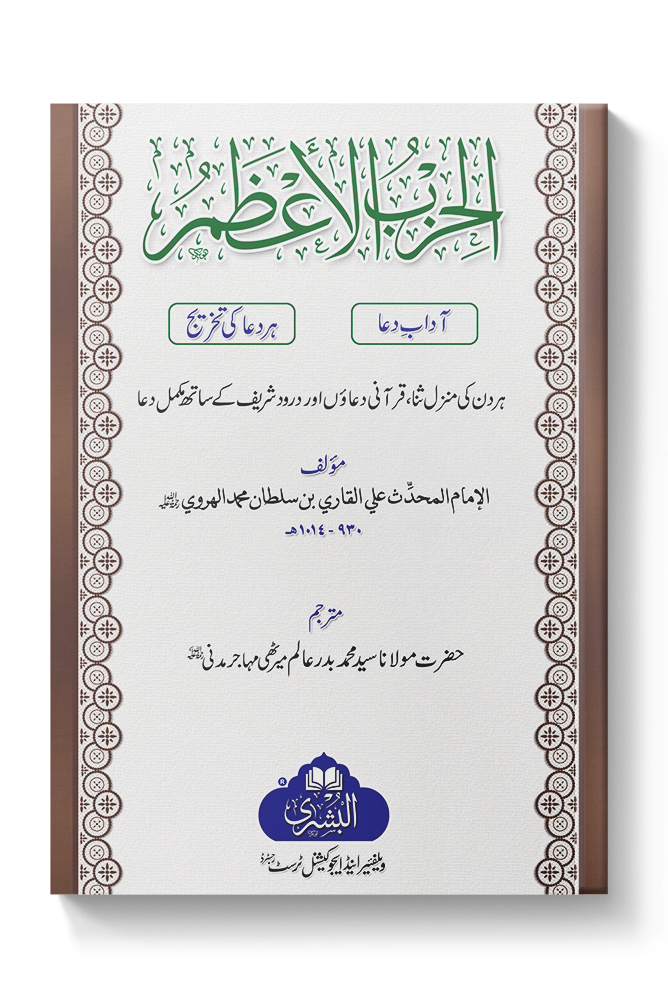 الحِزْبُ الأَعْظَمُ
آدابِ دعا
ہر دعا کی تخریج
ہر دن کی منزل ثنا، قرآنی دعاؤں اور درود شریف کے ساتھ مکمل دعا
مؤلف
الإمام المحدّث علي القاري بن سلطان محمد الهروي رحمۃ اللہ علیہ
٩٣٠ - ١٠١٤ھ
مترجم
حضرت مولانا سید محمد بدر عالم میرٹھی مہاجر مدنی رحمۃ اللہ علیہ
®
البشریٰ
ویلفیئر اینڈ ایجوکیشنل ٹرسٹ رجسٹرڈ